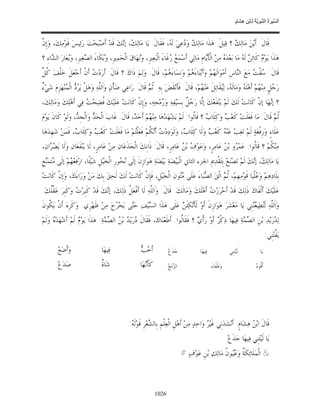 السّيرَة النّبَويّة لابْن هشَام
قَالَ أَيْنَ مَالِكٌ ؟ قِيلَ هَذَا مَالِكٌ وَدُعِيَ لَهُ، فَقَالَ يَا مَالِكُ، إنّك قَدْ أَصْبَحْتَ رَئِيسَ قَوْمِكَ، وَإِنّ
هَذَا يَوْمٌ كَائِنٌ لَهُ مَا بَعْدَهُ مِنْ الْأَيّامِ مَالِي أَسْمَعُ رُغَاءَ الْبَعِيرِ، وَنُهَاقَ الْحَمِيرِ، وَبُكَاءَ الصّغِيرِ، وَيُعَارَ الشّاءِ ؟
قَالَ سُقْتُ مَعَ النّاسِ أَمْوَالَهُمْ وَأَبْنَاءَهُمْ وَنِسَاءَهُمْ، قَالَ وَلِمَ ذَاكَ ؟ قَالَ أَرَدْتُ أَنْ أَجْعَلَ خَلْفَ كُلّ
رَجُلٍ مِنْهُمْ أَهْلَهُ وَمَالَهُ، لِيُقَاتِلَ عَنْهُمْ، قَالَ فَأَنْقَضَ بِهِ ثُمّ قَالَ رَاعِي ضَأْنٍ وَاَللّهِ وَهَلْ يَرُدّ الْمُنْهَزِمَ شَيْءٌ
؟ إنّهَا إنْ كَانَتْ لَك لَمْ يَنْفَعْك إلّا رَجُلٌ بِسَيْفِهِ وَرُمْحِهِ، وَإِنْ كَانَتْ عَلَيْك فُضِحْتَ فِي أَهْلِك وَمَالِكَ،
ثُمّ قَالَ مَا فَعَلَتْ كَعْبٌ وَكِلَابٌ ؟ قَالُوا لَمْ يَشْهَدْهَا مِنْهُمْ أَحَدٌ، قَالَ غَابَ الْحَدّ وَالْجِدّ، وَلَوْ كَانَ يَوْمَ
عَلَاءٍ وَرِفْعَةٍ لَمْ تَغِبْ عَنْهُ كَعْبٌ وَلَا كِلَابٌ، وَلَوَدِدْتُ أَنّكُمْ فَعَلْتُمْ مَا فَعَلَتْ كَعْبٌ وَكِلَابٌ، فَمَنْ شَهِدَهَا
مِنْكُمْ ؟ قَالُوا عَمْرُو بْنُ عَامِرٍ، وَعَوْفُ بْنُ عَامِرٍ، قَالَ ذَانِكَ الْجَذَعَانِ مِنْ عَامِرٍ، لَا يَنْفَعَانِ وَلَا يَضُرّانِ،
يَا مَالِكُ، إنّك لَمْ تَصْنَعْ بِتَقْدِيمِ الجزء الثاني الْبَيْضَةِ بَيْضَةِ هَوَازِنَ إلَى نُحُورِ الْخَيْلِ شَيْئًا، ارْفَعْهُمْ إلَى مُتَمَنّعِ
بِلَادِهِمْ وَعُلْيَا قَوْمِهِمْ، ثُمّ الْقَ الصّبَاءَ عَلَى مُتُونِ الْخَيْلِ، فَإِنْ كَانَتْ لَك لَحِقَ بِك مَنْ وَرَاءَك، وَإِنْ كَانَتْ
عَلَيْك أَلْفَاكَ ذَلِكَ قَدْ أَحْرَزْتَ أَهْلَك وَمَالَكَ قَالَ وَاَللّهِ لَا أَفْعَلُ ذَلِكَ، إنّك قَدْ كَبِرْتَ وَكَبِرَ عَقْلُكَ
وَاَللّهِ لَتُطِيعُنّنِي يَا مَعْشَرَ هَوَازِنَ أَوْ لَأَتّكِئَنّ عَلَى هَذَا السّيْفِ حَتّى يَخْرُجَ مِنْ ظَهْرِي وَكَرِهَ أَنْ يَكُونَ
لِدُرَيْدِ بْنِ الصّمّةِ فِيهَا ذِكْرٌ أَوْ رَأْيٌ ؟ فَقَالُوا أَطَعْنَاك، فَقَالَ دُرَيْدُ بْنُ الصّمّةِ هَذَا يَوْمٌ لَمْ أَشْهَدْهُ وَلَمْ
يَفُتْنِي
يَا لَيْتَنِي فِيهَا جَذَعْ أَخُبّ فِيهَا وَأَضَعْ
أَقُودُ وَطْفَاءَ الزّمَعْ كَأَنّهَا شَاةٌ صَدَعْ
قَالَ ابْنُ هِشَامٍ أَنْشَدَنِي غَيْرُ وَاحِدٍ مِنْ أَهْلِ الْعِلْمِ بِالشّعْرِ قَوْلَهُ
يَا لَيْتَنِي فِيهَا جَذَعْ
الْمَلَائِكَةُ وَعُيُونُ مَالِكِ بْنِ عَوْفٍ
1026